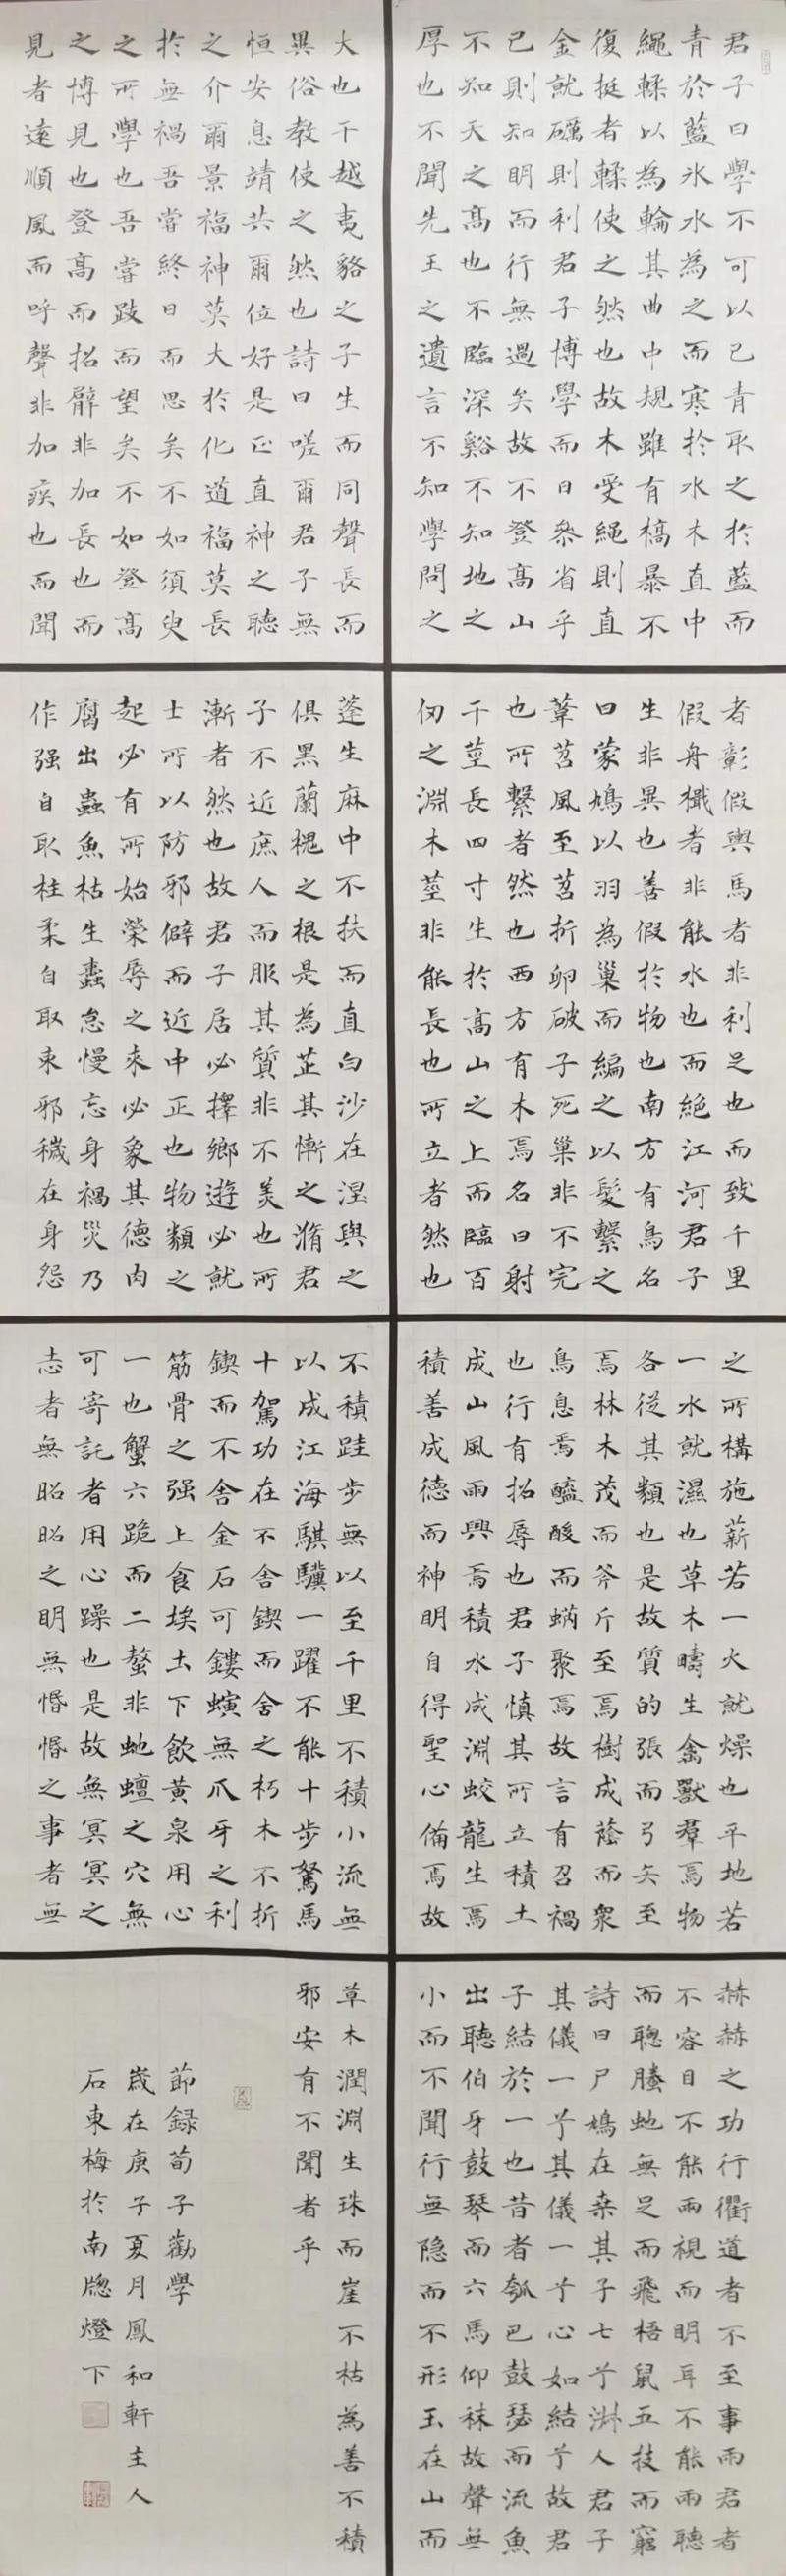 君子曰學不可以已青取之於藍而
青於藍氷水為之而寒於水木直中
繩輮以為輪其曲中規雖有槁暴不
復挺者輮使之然也故木受繩則直
金就礪則利君子博學而日參省乎
己則知明而行無過矣故不登高山
不知天之高也不臨深谿不知地之
厚也不聞先王之遺言不知學問之
大也干越夷貉之子生而同聲長而
異俗教使之然也詩曰嗟爾君子無
恒安息靖共爾位好是正直神之聽
之介爾景福神莫大於化道福莫長
於無禍吾嘗終日而思矣不如須臾
之所學也吾嘗跂而望矣不如登高
之博見也登高而招臂非加長也而
見者遠順風而呼聲非加疾也而聞
者彰假輿馬者非利足也而致千里
假舟檝者非能水也而絕江河君子
生非異也善假於物也南方有鳥名
曰蒙鳩以羽為巢而編之以髮繫之
葦苕風至苕折卵破子死巢非不完
也所繫者然也西方有木焉名曰射
干莖長四寸生於高山之上而臨百
仞之淵木莖非能長也所立者然也
蓬生麻中不扶而直白沙在涅與之
俱黑蘭槐之根是為芷其慚之滫君
子不近庶人而服其質非不美也所
漸者然也故君子居必擇鄉遊必就
士所以防邪僻而近中正也物類之
起必有所始榮辱之來必象其德肉
腐出蟲魚枯生蠹怠慢忘身禍災乃
作强自取柱柔自取束邪穢在身怨
之所構施薪若一火就燥也平地若
一水就濕也草木疇生禽獸羣焉物
各從其類也是故質的張而弓矢至
焉林木茂而斧斤至焉樹成蔭而衆
鳥息焉醯酸而蜹聚焉故言有召禍
也行有招辱也君子慎其所立積土
成山風雨興焉積水成淵蛟龍生焉
積善成德而神明自得聖心備焉故
不積跬步無以至千里不積小流無
以成江海騏驥一躍不能十步駑馬
十駕功在不舍鍥而舍之朽木不折
鍥而不舍金石可鏤螾無爪牙之利
筋骨之强上食埃土下飲黃泉用心
一也蟹六跪而二螯非虵蟺之穴無
可寄託者用心躁也是故無冥冥之
志者無昭昭之明無惛惛之事者無
赫赫之功行衢道者不至事兩君者
不容目不能兩視而明耳不能兩聽
而聰螣虵無足而飛梧鼠五技而窮
詩曰尸鳩在桑其子七兮淑人君子
其儀一兮其儀一兮心如結兮故君
子結於一也昔者瓠巴鼓瑟而流魚
出聽伯牙鼓琴而六馬仰秣故聲無
小而不聞行無隐而不形玉在山而
草木潤淵生珠而崖不枯為善不積
邪安有不聞者乎
節録荀子勸學
歲在庚子夏月鳳和軒主人
石東梅於南牕燈下